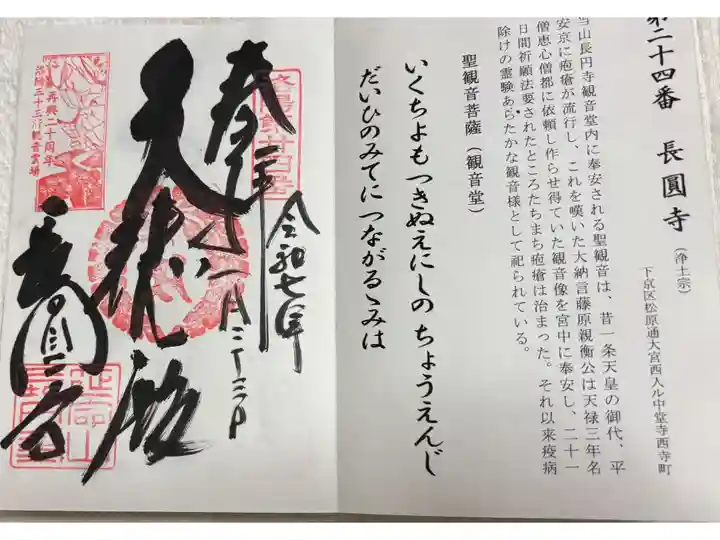 第二十四番 長圓寺(浄土宗)
下京区松原通大宮西入ル中堂寺西寺町
当山長円寺観音堂内に奉安される聖観音は、昔一条天皇の御代、平
安京に疱瘡が流行し、これを嘆いた大納言藤原親衡公は天禄三年名
僧恵心僧都に依頼し作らせ得ていた観音像を宮中に奉安し、二十一
日間祈願法要されたところたちまち疱瘡は治まった。それ以来疫病
除けの霊験あらたかな観音様として祀られている。
聖観音菩薩(観音堂)
いくちよもつきぬえにしの ちょうえんじ
だいひのみてにつながるゝみは
洛陽第廿四番
令和七年
奉拝
十一月二十三日
大悲殿
再興二十周年
洛陽三十三所観音霊場
長圓寺
延命山